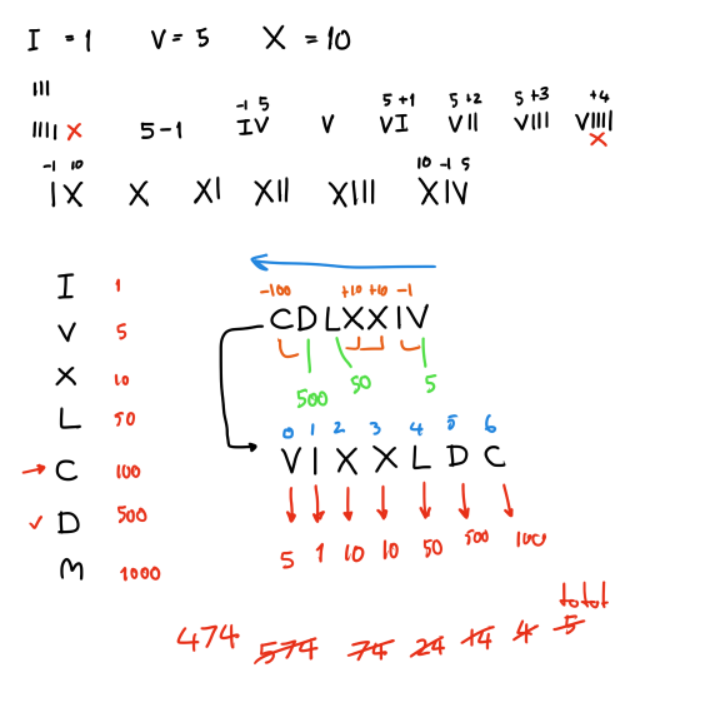 I = 1 V = 5 X = 10
III
-1 5 5 +1 5 +2 5 +3 +4
IIII X 5-1 IV V VI VII VIII VIIII
X
-1 10 10 -1 5
IX X XI XII XIII XIV
I 1
V 5
X 10
L 50
→ C 100
✓ D 500
M 1000
-100 +10 +10 -1
CDLXXIV
500 50 5
0 1 2 3 4 5 6
V I X X L D C
5 1 10 10 50 500 100
total
474 574 74 24 14 4 5